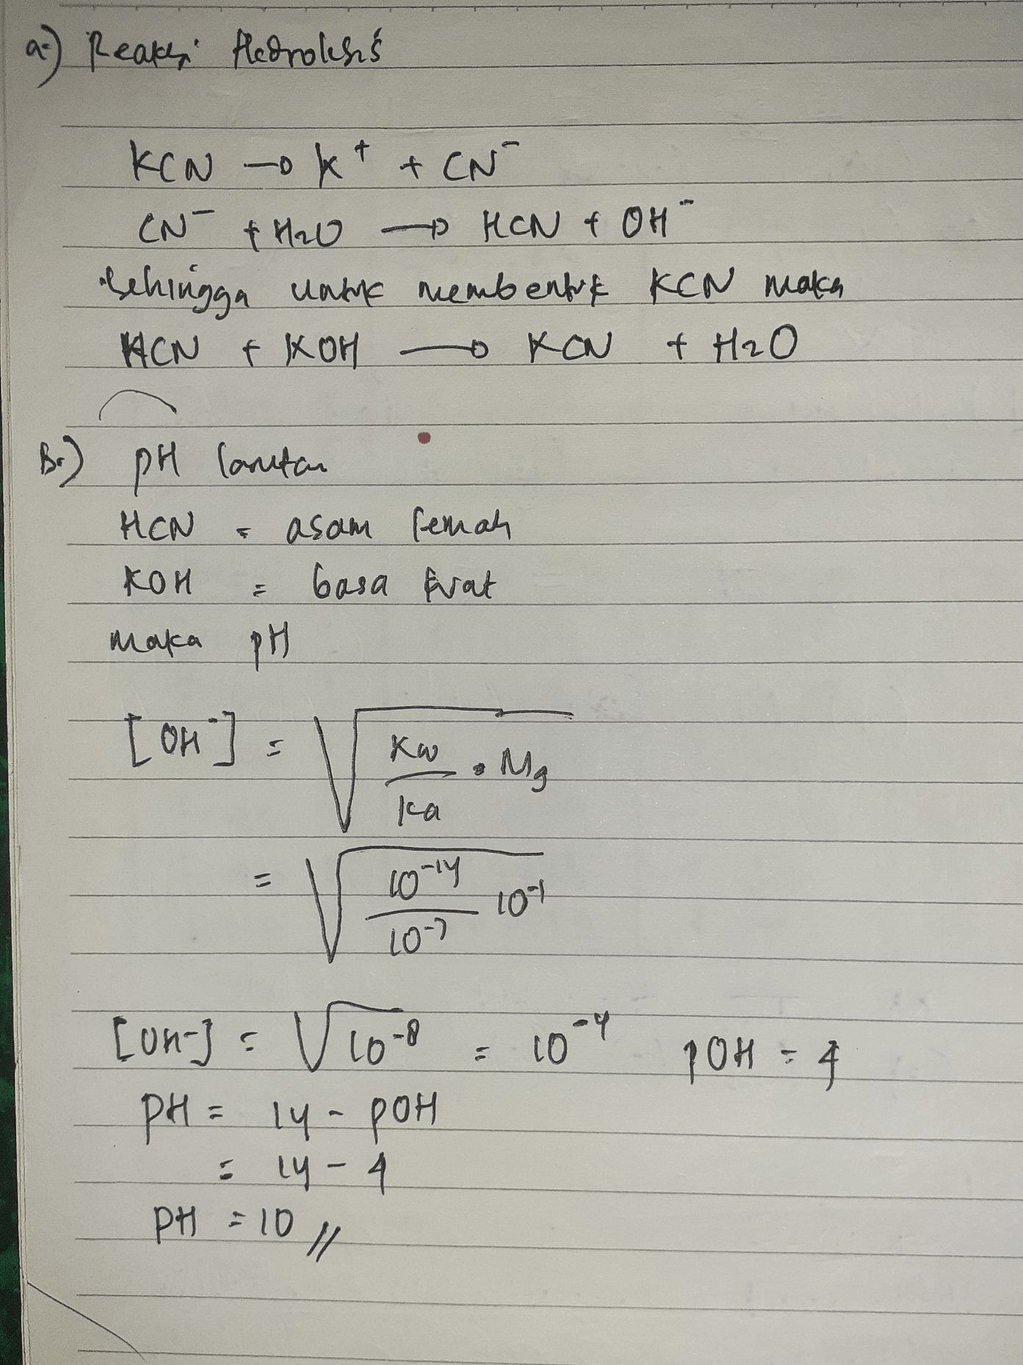 a.) Reaksi Hedrolisis
KCN → K⁺ + CN⁻
CN⁻ + H₂O → HCN + OH⁻
sehingga untuk membentuk KCN maka
HCN + KOH → KCN + H₂O
B.) pH larutan
HCN = asam lemah
KOH = basa kuat
maka pH
[OH⁻] = √(Kw/Ka · Mg)
= √(10⁻¹⁴/10⁻⁷ 10⁻¹)
[OH⁻] = √10⁻⁸ = 10⁻⁴ pOH = 4
PH = 14 - POH
= 14 - 4
PH = 10 //